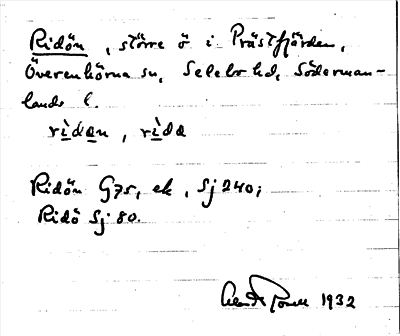 Ridön, större ö i Prästfjärden,
Överenhörna sn, Selebo hd, Söderman-
lands l.
rìdan, rìda
Ridön G75, ek, Sj 240;
Ridö Sj 80.
1932